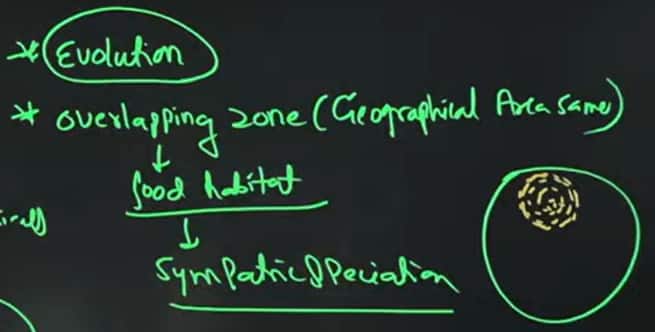 * Evolution
* overlapping zone (Geographical Area same)
↓
food habitat
↓
Sympatric Speciation